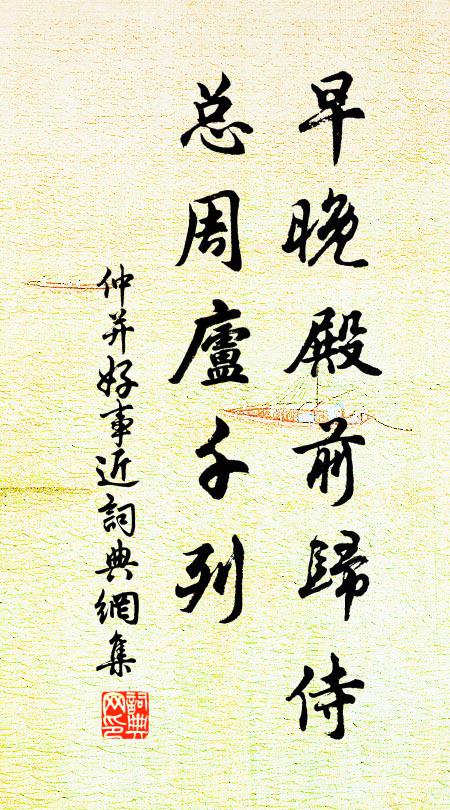 早晚殿前歸侍
总周廬千列
仲并好事近詞典網集
詞典
网印